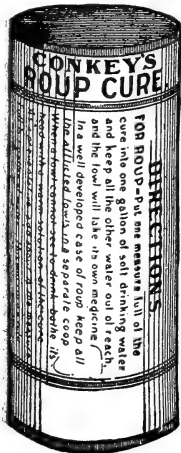 CONKEYS
ROUP CURE
DIRECTIONS
FOR ROUP-Put one measure full of the
cure into one gallon of soft drinking water
and keep all the other water out of reach,
and the fowl will take its own medicine.
In a well developed case of roup keep all
the afflicted fowls in a separate coop
When a fowl cannot see to drink bathe its
head with a warm solution of the cure